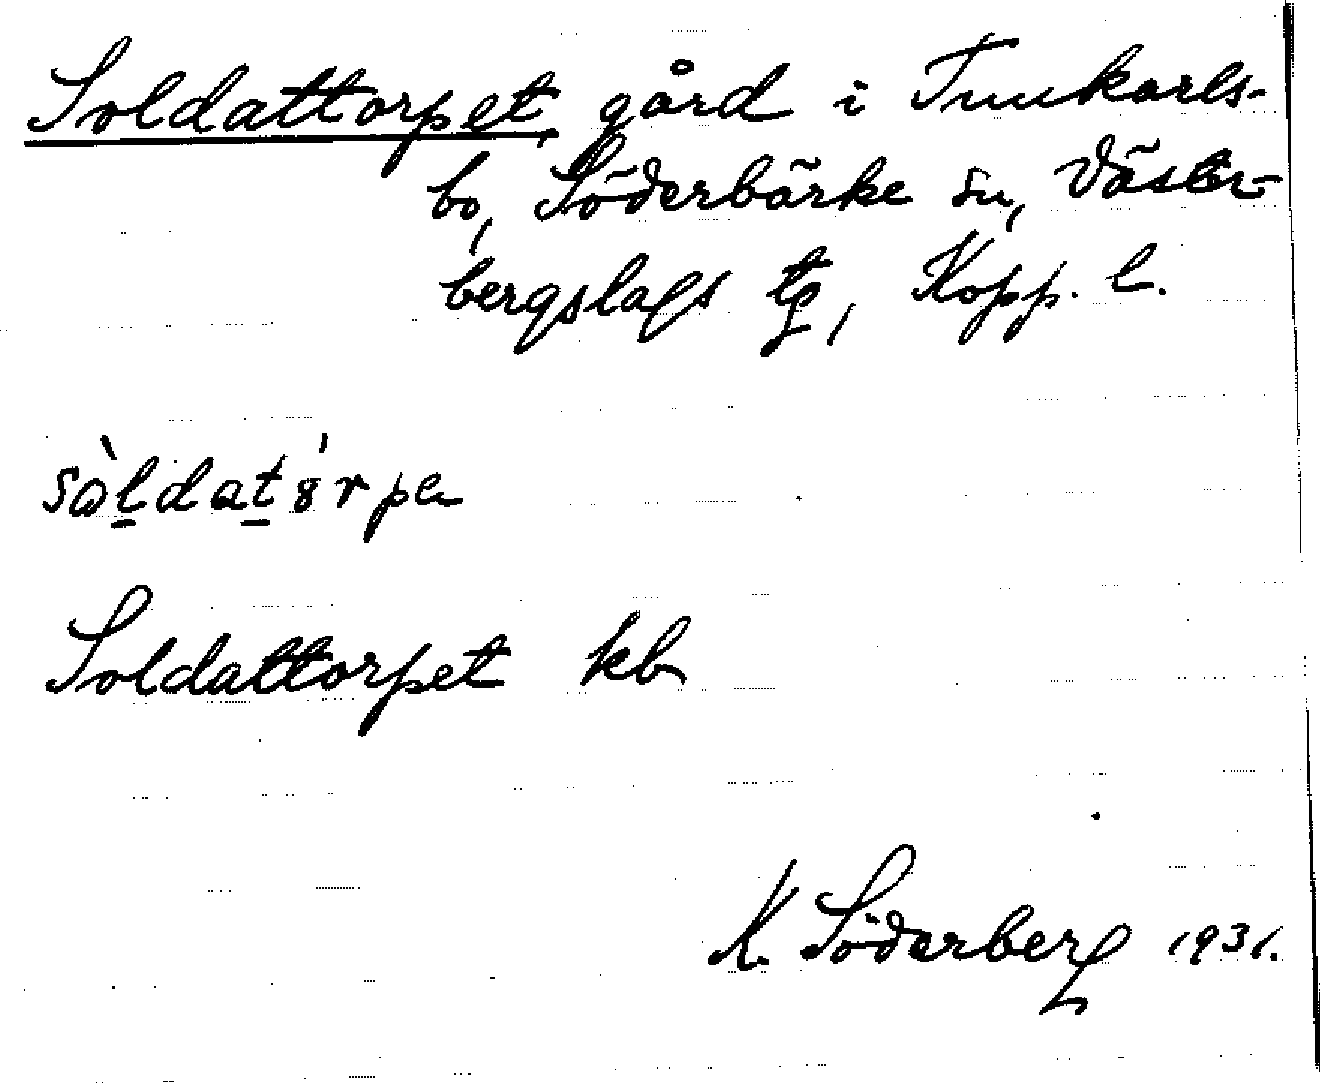 Soldattorpet, gård i Tunkarls-
bo, Söderbärke sn, Väster-
bergslags tg, Kopp. l.
sòldatórpe
Soldattorpet kb
K. Söderberg 1931.